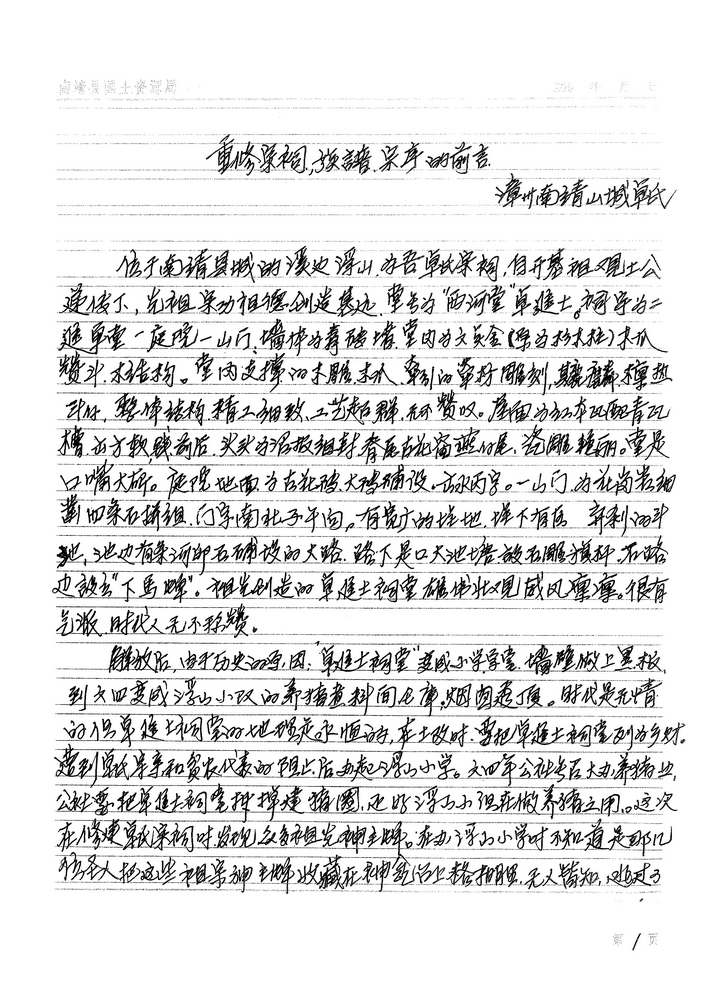 南靖县国土资源局 200 年 月 日
重修宗祠、族谱、宗序的前言
漳州南靖山城卓氏
位于南靖县城的溪边浮山,为吾卓氏宗祠,自开基祖观士公
递传下,先祖宗功祖德创造基迹,堂号为"西河堂"卓进士。祠宇为二
进单堂一庭院一山门,墙体为青砖墙,堂内为六员金(原为杉木柱)木瓜
赞斗,木结构。堂内支撑的木雕木瓜,牵引的草籽雕刻,
整体结构精工细致,工艺超群,无不赞叹。屋面为红本瓦配青瓦
脊尾古花 瓷雕艳丽。堂是
口嘴大砛。庭院地面为古花砖大砖铺设。一山门,为花岗岩细
凿四条石 组,门字南北子午向。有宽广的埕地,埕下有
池,池边有条河卵石铺设的大路,路下是口大池塘,设石雕旗杆,石路
边设立"下马牌"。祖先创造的卓进士祠堂雄伟壮观威风凛凛。很有
气派,时代人无不称赞。
解放后,由于历史的原,因,"卓进士祠堂"变成小学学堂,墙壁做上黑板,
到六四变成浮山小队的养猪煮料间仓库,烟囱透顶。时代是无情
的但卓进士祠堂的地理是永恒的,在土改时,要把卓进士祠堂列为乡财。
遭到卓氏宗亲和贫农代表的阻止后办起浮山小学。六四年公社号召大办养猪业,
公社要把卓进士祠堂拆掉建猪圈,还好浮山小组在做养猪之用。这次
在修建卓氏宗祠时发现众多祖先神主牌。在办浮山小学时不知道是那几
位圣人把这些祖宗神主牌收藏在神龛 上 无人皆知,
第 1 页